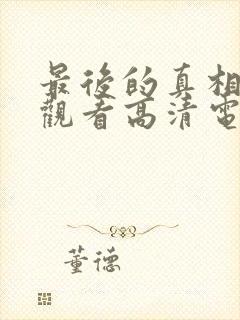 最後的真相
觀看高清電
董德